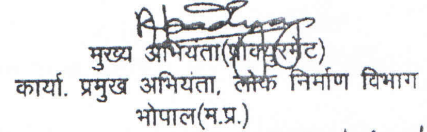 मुख्य अभियंता(प्रोक्युरमेंट)
कार्या. प्रमुख अभियंता, लोक निर्माण विभाग
भोपाल(म.प्र.)